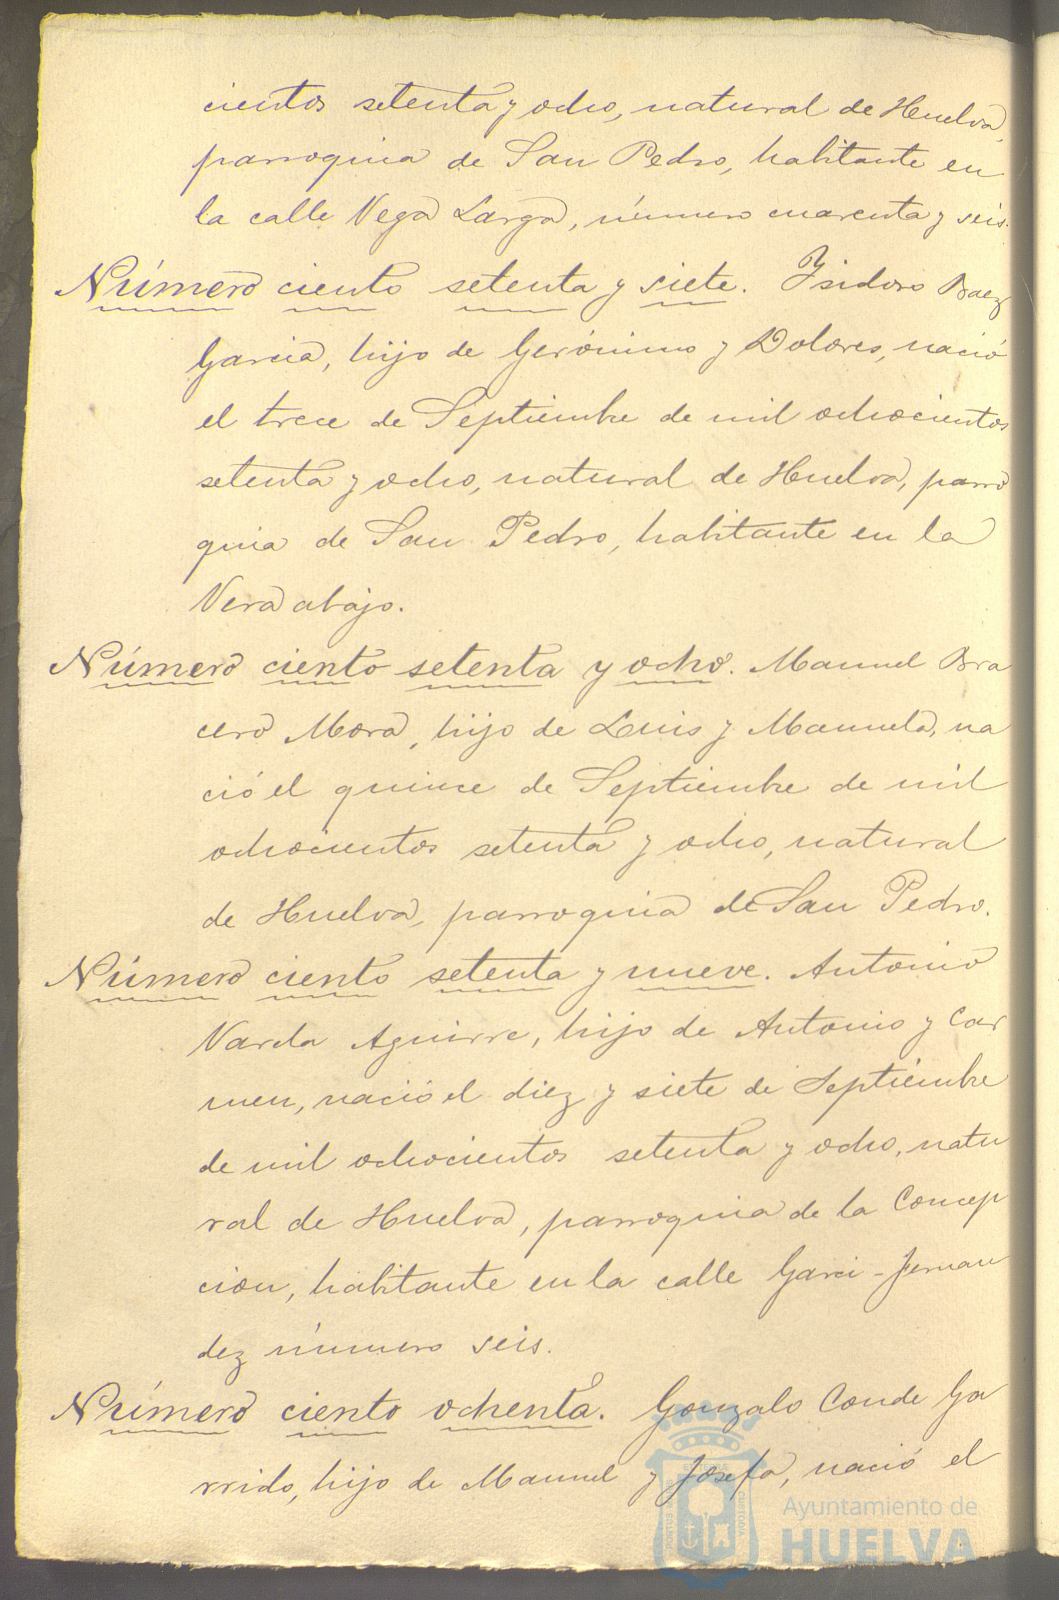 cientos setenta y ocho, natural de Huelva,
parroquia de San Pedro, habitante en
la calle Vega Larga, número cuarenta y seis.
Número ciento setenta y siete. Ysidoro Baez
Garcia, hijo de Gerónimo y Dolores, nació
el trece de Septiembre de mil ochocientos
setenta y ocho, natural de Huelva, parro
quia de San Pedro, habitante en la
Vera abajo.
Número ciento setenta y ocho. Manuel Bra
cero Mora, hijo de Luis y Manuela, na
ció el quince de Septiembre de mil
ochocientos setenta y ocho, natural
de Huelva, parroquia de San Pedro.
Número ciento setenta y nueve. Antonio
Varela Aguirre, hijo de Antonio y Car
men, nació el diez y siete de Septiembre
de mil ochocientos setenta y ocho, natu
ral de Huelva, parroquia de la Concep
cion, habitante en la calle Garci-Fernan
dez número seis.
Número ciento ochenta. Gonzalo Conde Ga
rrido, hijo de Manuel y Josefa, nació el
Ayuntamiento de
HUELVA